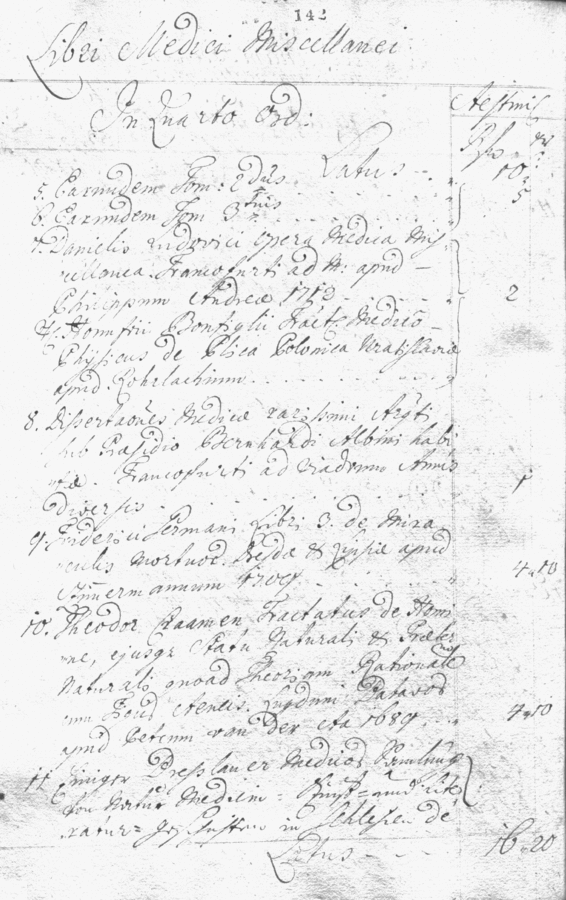 142
Libri Medici Miscellanei
In Quarto Ord:
Aestimis
Latus
10
5. Earundem Tom: 2dus
5
6. Earundem Tom 3tius
7. Danielis Ludovici Opera Medica Mis
cellanea. Francofurti ad M: apud
Philippum Andreæ 1712
2
Bonfigli Tract: Medico
Physicus de Plica Polonica Vratislaviæ
apud
8. Dissertationes Medicæ rarissimi Argti
sub Præsidio Bernhardi Albini habi
tæ. Francofurti ad Viadrum Annis
1
diversis
9. Friderici Germani Libri 3. de Mira
culis Mortuor. Dresdæ & Lipsiæ apud
Zimmermannum 1709
4 10
10. Theodor Craanen Tractatus de Homi
ne, ejusqz Statu Naturali & Præter
Naturali quoad Theoriam Rationale
Lugduni Batavor
apud Petrum van der Aa 1689
4 10
11 Einiger Breslauer Medicor Samlung
von Natur Medicin = Kunst = und Lite
ratur = Geschichten in Schlesien de
Latus
16 20